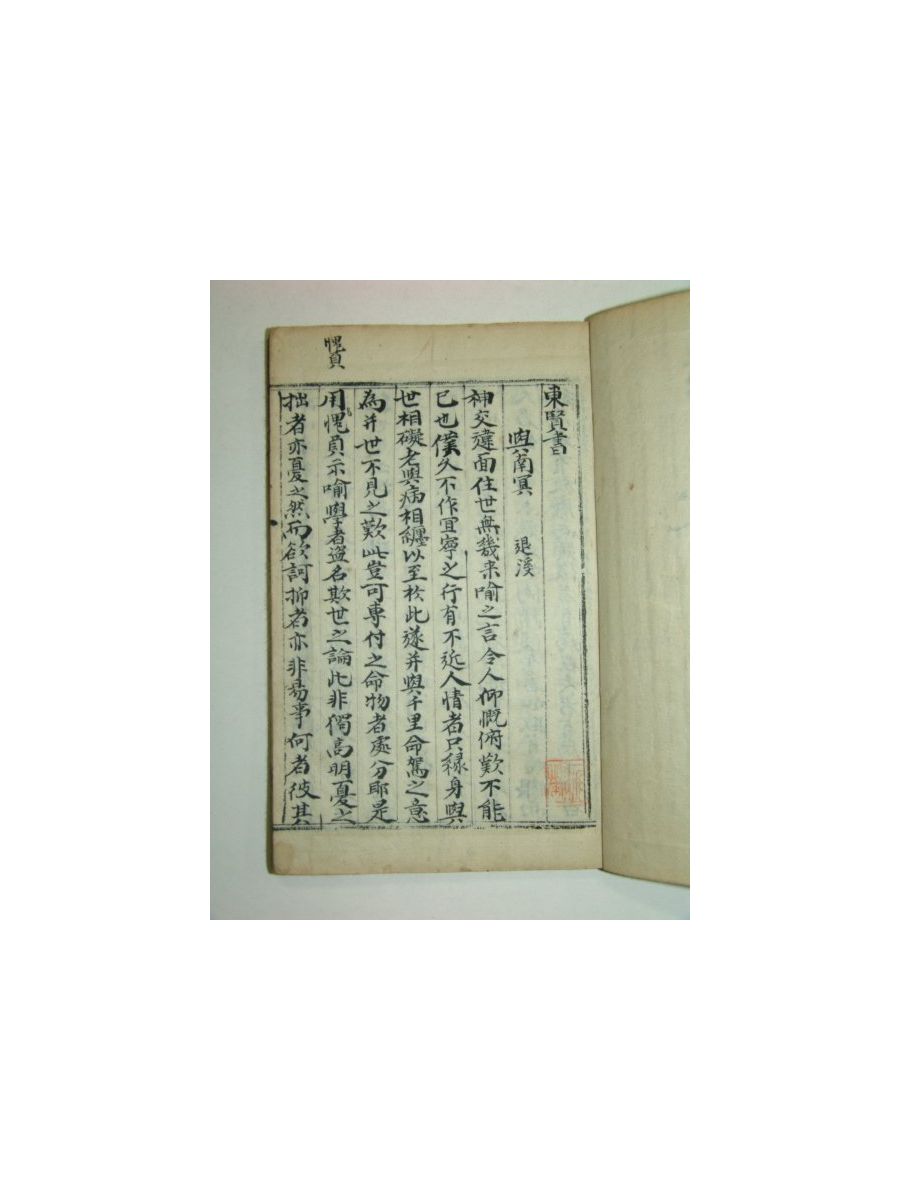 東賢書
與南冥 退溪
神交違面住世無幾来喻之言令人仰慨俯歎不能
已也僕久不作宜寧之行有不近人情者只緣身與
世相礙老與病相纏以至於此遂并與千里命駕之意
為并世不見之歎此豈可專付之命物者處分耶是
用愧負示喻學者盜名欺世之論此非獨高明憂之
拙者亦憂之然而欲訶抑者亦非易事何者彼其
愧負